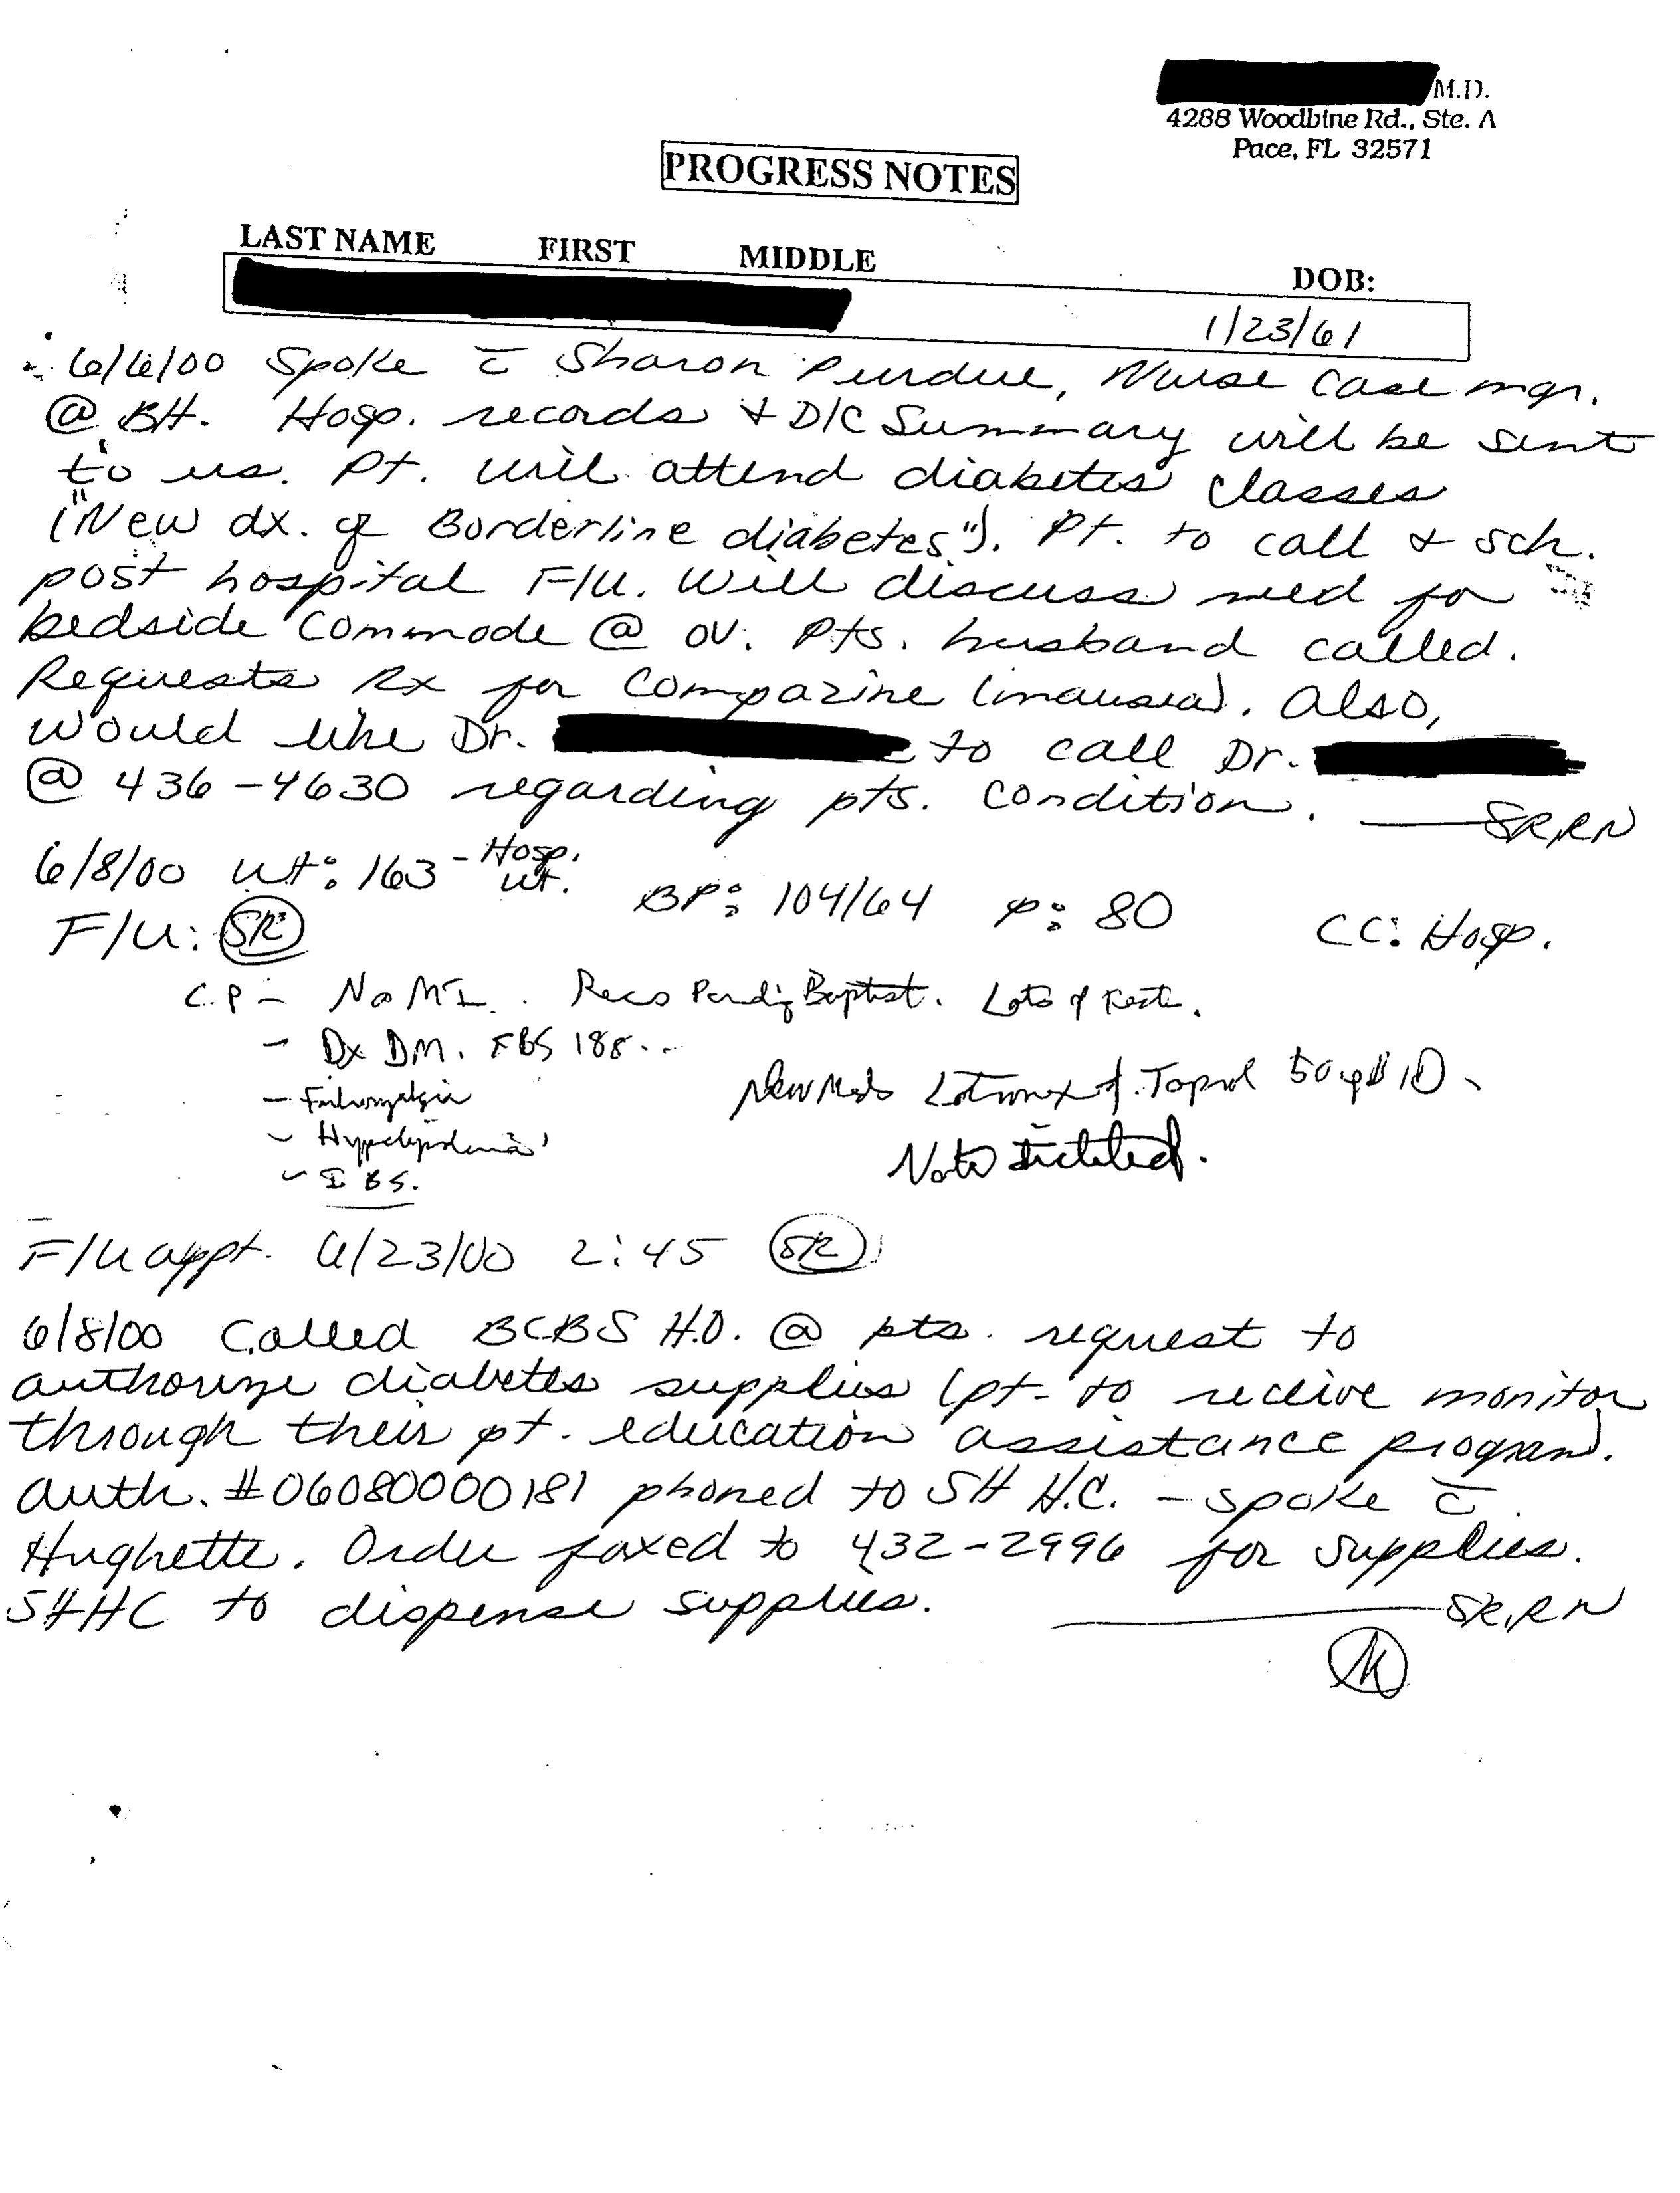 M.D.
4288 Woodbine Rd., Ste. A
Pace, FL 32571
PROGRESS NOTES
LAST NAME FIRST MIDDLE DOB:
1/23/61
6/6/00 Spoke c̄ Sharon Purdue, Nurse Case mgr.
@ BH. Hosp. records + D/C Summary will be sent
to us. Pt. will attend diabetes classes
("New dx. of Borderline diabetes"). Pt. to call & sch.
post hospital F/U. Will discuss need for
bedside commode @ OV. Pts. husband called.
Requests Rx for Compazine (nausea). Also,
would like Dr. to call Dr.
@ 436-4630 regarding pts. condition. SR,RN
6/8/00 wt: 163 - Hosp. wt. BP: 104/64 P: 80 CC: Hosp.
F/U: SR
C.P - No MI. Recs Pending Baptist. Lots of
- Dx DM. FBS 188
- Fibromyalgia New Meds Lotronex Toprol 50
- Hyperlipidemia
- IBS. Note dictated.
F/U appt. 6/23/00 2:45 SR
6/8/00 Called BCBS H.O. @ pts. request to
authorize diabetes supplies (pt. to receive monitor
through their pt. education assistance program).
Auth. #06080000181 phoned to SH H.C. - spoke c̄
Hughette. Order faxed to 432-2996 for supplies.
SHHC to dispense supplies. SR,RN